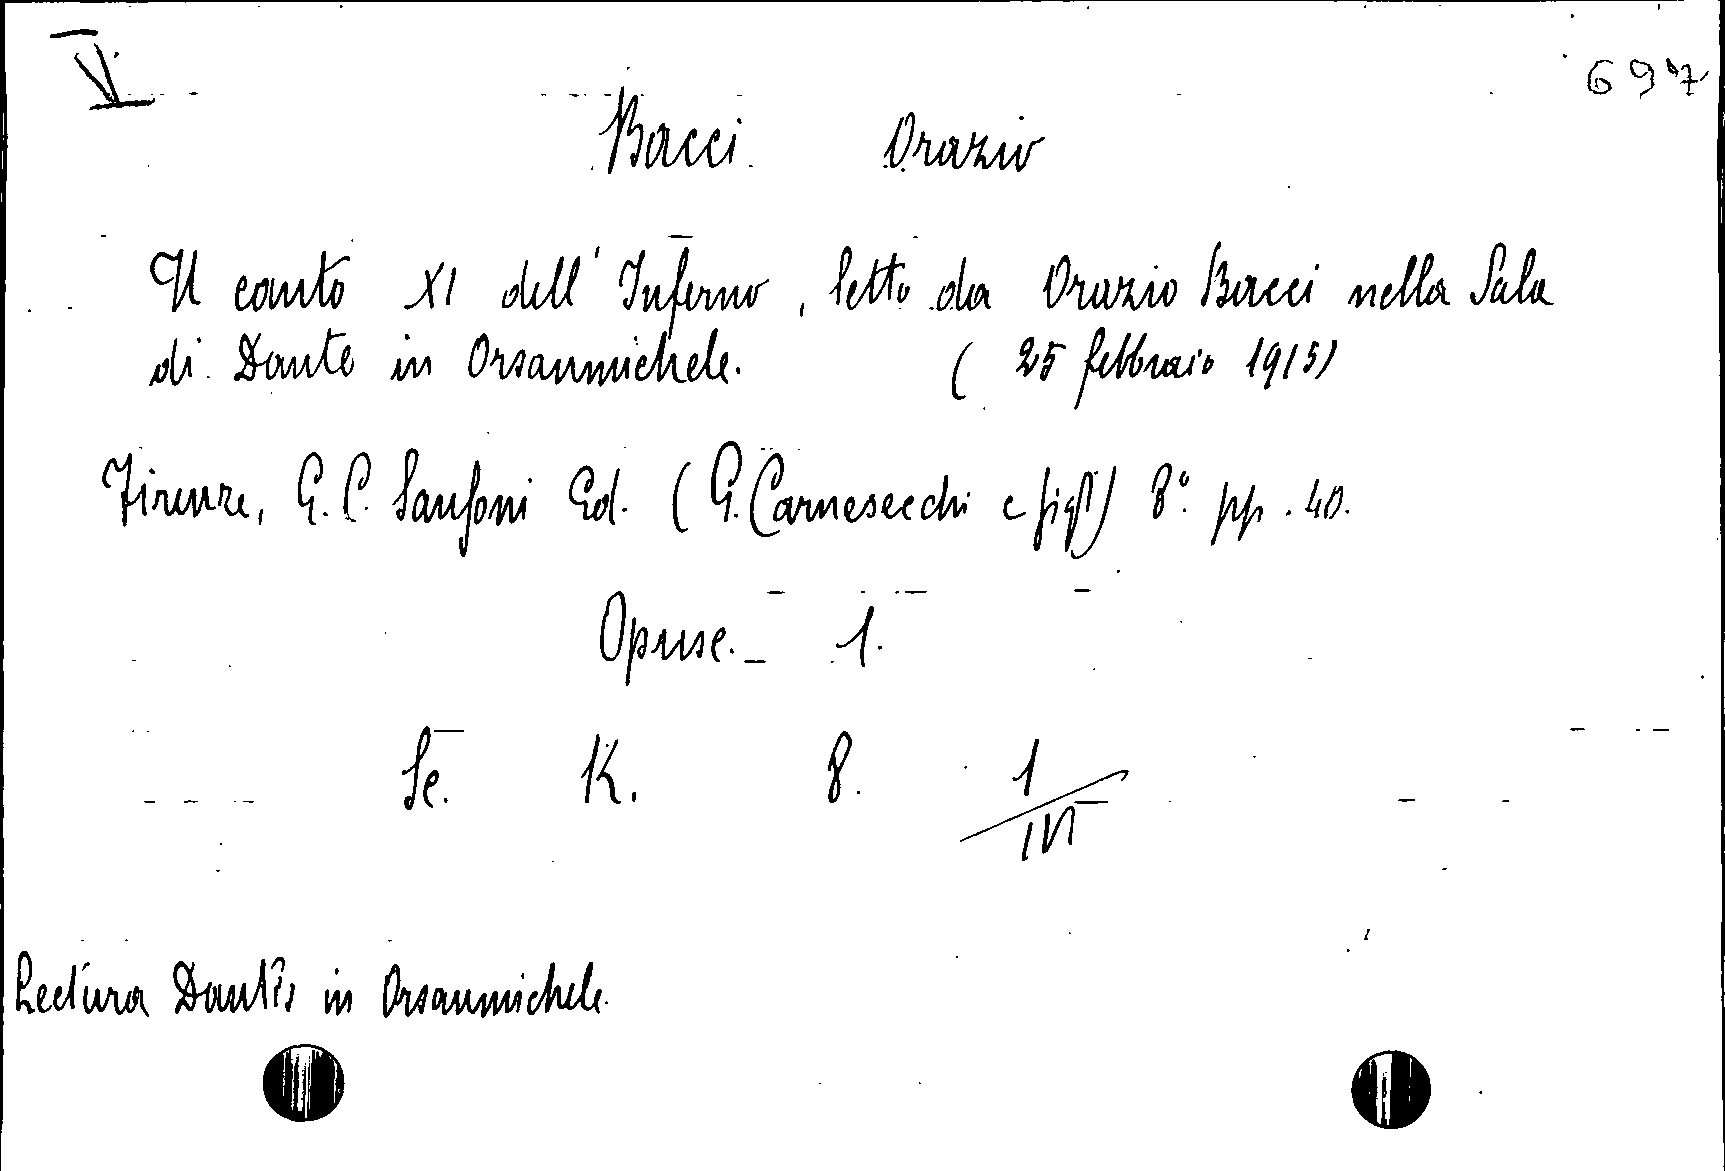 V.
697
Bacci Orazio
Il canto XI dell' Inferno, letto da Orazio Bacci nella Sala
di Dante in Orsanmichele. ( 25 febbraio 1915)
Firenze, G. C. Sansoni Ed. ( G. Carnesecchi e figl) 8° pp. 40.
Opusc. - 1.
Sc. K. 8. 1
Lectura Dantis in Orsanmichele.